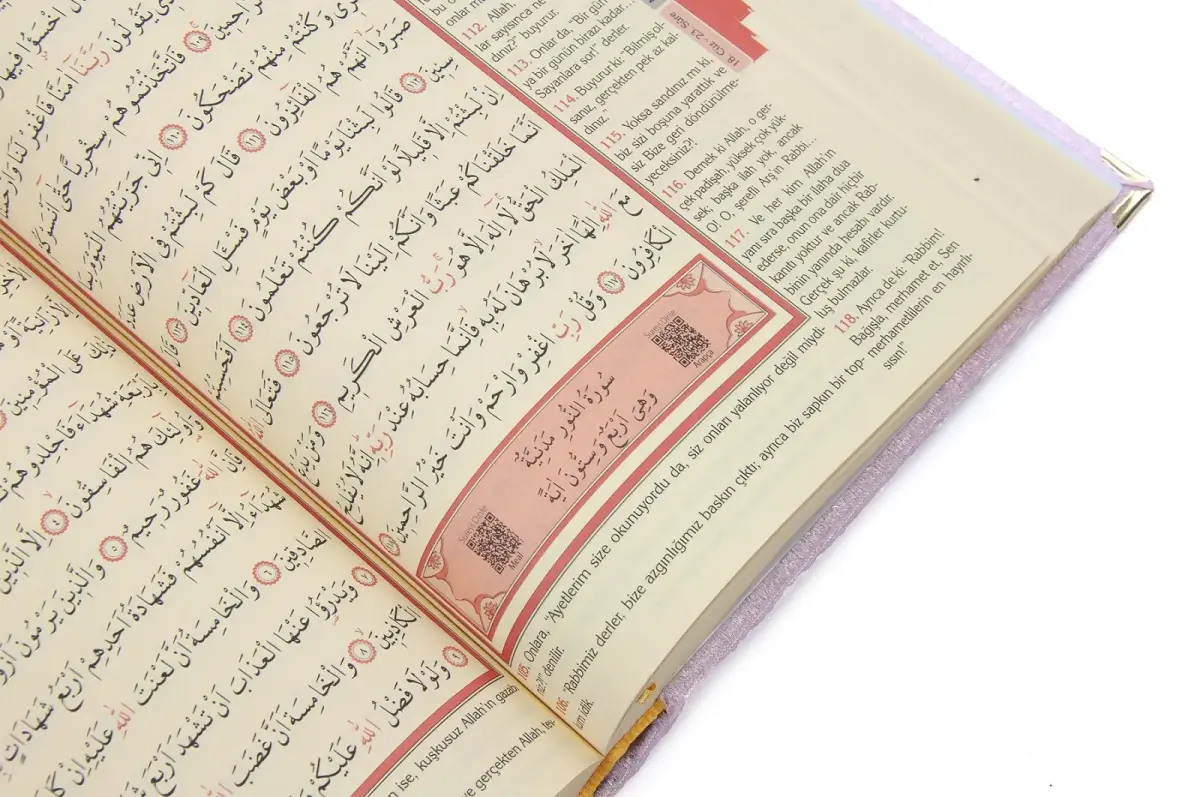 احِمِينَ ١٠٩ فَاتَّخَذْتُمُوهُمْ سِخْرِيًّا حَتّٰى
وَكُنْتُمْ مِنْهُمْ تَضْحَكُونَ ١١٠ اِنّٖى جَزَيْتُهُمُ الْيَوْمَ
صَبَرُوا اَنَّهُمْ هُمُ الْفَائِزُونَ ١١١ قَالَ كَمْ لَبِثْتُمْ فِى الْاَرْضِ
سِنٖينَ ١١٢ قَالُوا لَبِثْنَا يَوْمًا اَوْ بَعْضَ يَوْمٍ فَسْـَٔلِ الْعَادّٖينَ ١١٣
اِنْ لَبِثْتُمْ اِلَّا قَلٖيلًا لَوْ اَنَّكُمْ كُنْتُمْ تَعْلَمُونَ ١١٤
اَنَّمَا خَلَقْنَاكُمْ عَبَثًا وَاَنَّكُمْ اِلَيْنَا لَا تُرْجَعُونَ ١١٥ فَتَعَالَى اللّٰهُ
الْمَلِكُ الْحَقُّ لَا اِلٰهَ اِلَّا هُوَ رَبُّ الْعَرْشِ الْكَرٖيمِ ١١٦ وَمَنْ يَدْعُ
مَعَ اللّٰهِ اِلٰهًا اٰخَرَ لَا بُرْهَانَ لَهُ بِهٖ فَاِنَّمَا حِسَابُهُ عِنْدَ رَبِّهٖ اِنَّهُ لَا يُفْلِحُ
الْكَافِرُونَ ١١٧ وَقُلْ رَبِّ اغْفِرْ وَارْحَمْ وَاَنْتَ خَيْرُ الرَّاحِمٖينَ ١١٨
سُورَةُ النُّورِ مَدَنِيَّةٌ
وَهِىَ اَرْبَعٌ وَسِتُّونَ اٰيَةً
Sureyi Dinle
Arapça
Sureyi Dinle
Meal
18. Cüz - 23. Sûre
112. Allah,
lar sayısınca ne
dınız?" buyurur.
113. Onlar da, "Bir gün
ya bir günün birazı kadar...
Sayanlara sor!" derler.
114. Buyurur ki: "Bilmiş ol-
sanız, gerçekten pek az kal-
dınız."
115. Yoksa sandınız mı ki,
biz sizi boşuna yarattık ve
siz Bize geri döndürülme-
yeceksiniz?!
116. Demek ki Allah, o ger-
çek padişah, yüksek çok yük-
sek, başka ilah yok, ancak
O! O, şerefli Arş'ın Rabbi...
117. Ve her kim Allah'ın
yanı sıra başka bir ilaha dua
ederse, onun ona dair hiçbir
kanıtı yoktur ve ancak Rab-
binin yanında hesabı vardır.
Gerçek şu ki, kafirler kurtu-
luş bulmazlar.
118. Ayrıca de ki: "Rabbim!
Bağışla, merhamet et, Sen
merhametlilerin en hayırlı-
sısın!"
105. Onlara, "Ayetlerim size okunuyordu da, siz onları yalanlıyor değil miydi-
niz?!" denilir.
106. "Rabbimiz derler, bize azgınlığımız baskın çıktı; ayrıca biz sapkın bir top-
lum idik.
عَلَى الْمُؤْمِنٖينَ
شُهَدَاءَ فَاجْلِدُوهُمْ
وَاُولٰئِكَ هُمُ الْفَاسِقُونَ ٤ اِلَّا الَّذٖينَ
اللّٰهَ غَفُورٌ رَحٖيمٌ ٥ وَالَّذٖينَ يَرْمُونَ
شُهَدَاءُ اِلَّا اَنْفُسُهُمْ فَشَهَادَةُ اَحَدِهِمْ اَرْبَعُ شَهَادَاتٍ
الصَّادِقٖينَ ٦ وَالْخَامِسَةُ اَنَّ لَعْنَتَ اللّٰهِ عَلَيْهِ اِنْ
٧ وَيَدْرَؤُا عَنْهَا الْعَذَابَ اَنْ تَشْهَدَ اَرْبَعَ
الْكَاذِبٖينَ ٨ وَالْخَامِسَةَ اَنَّ غَضَبَ
٩ وَلَوْلَا فَضْلُ اللّٰهِ عَلَيْكُمْ
ise, kuşkusuz Allah'ın gazab
ve gerçekten Allah,